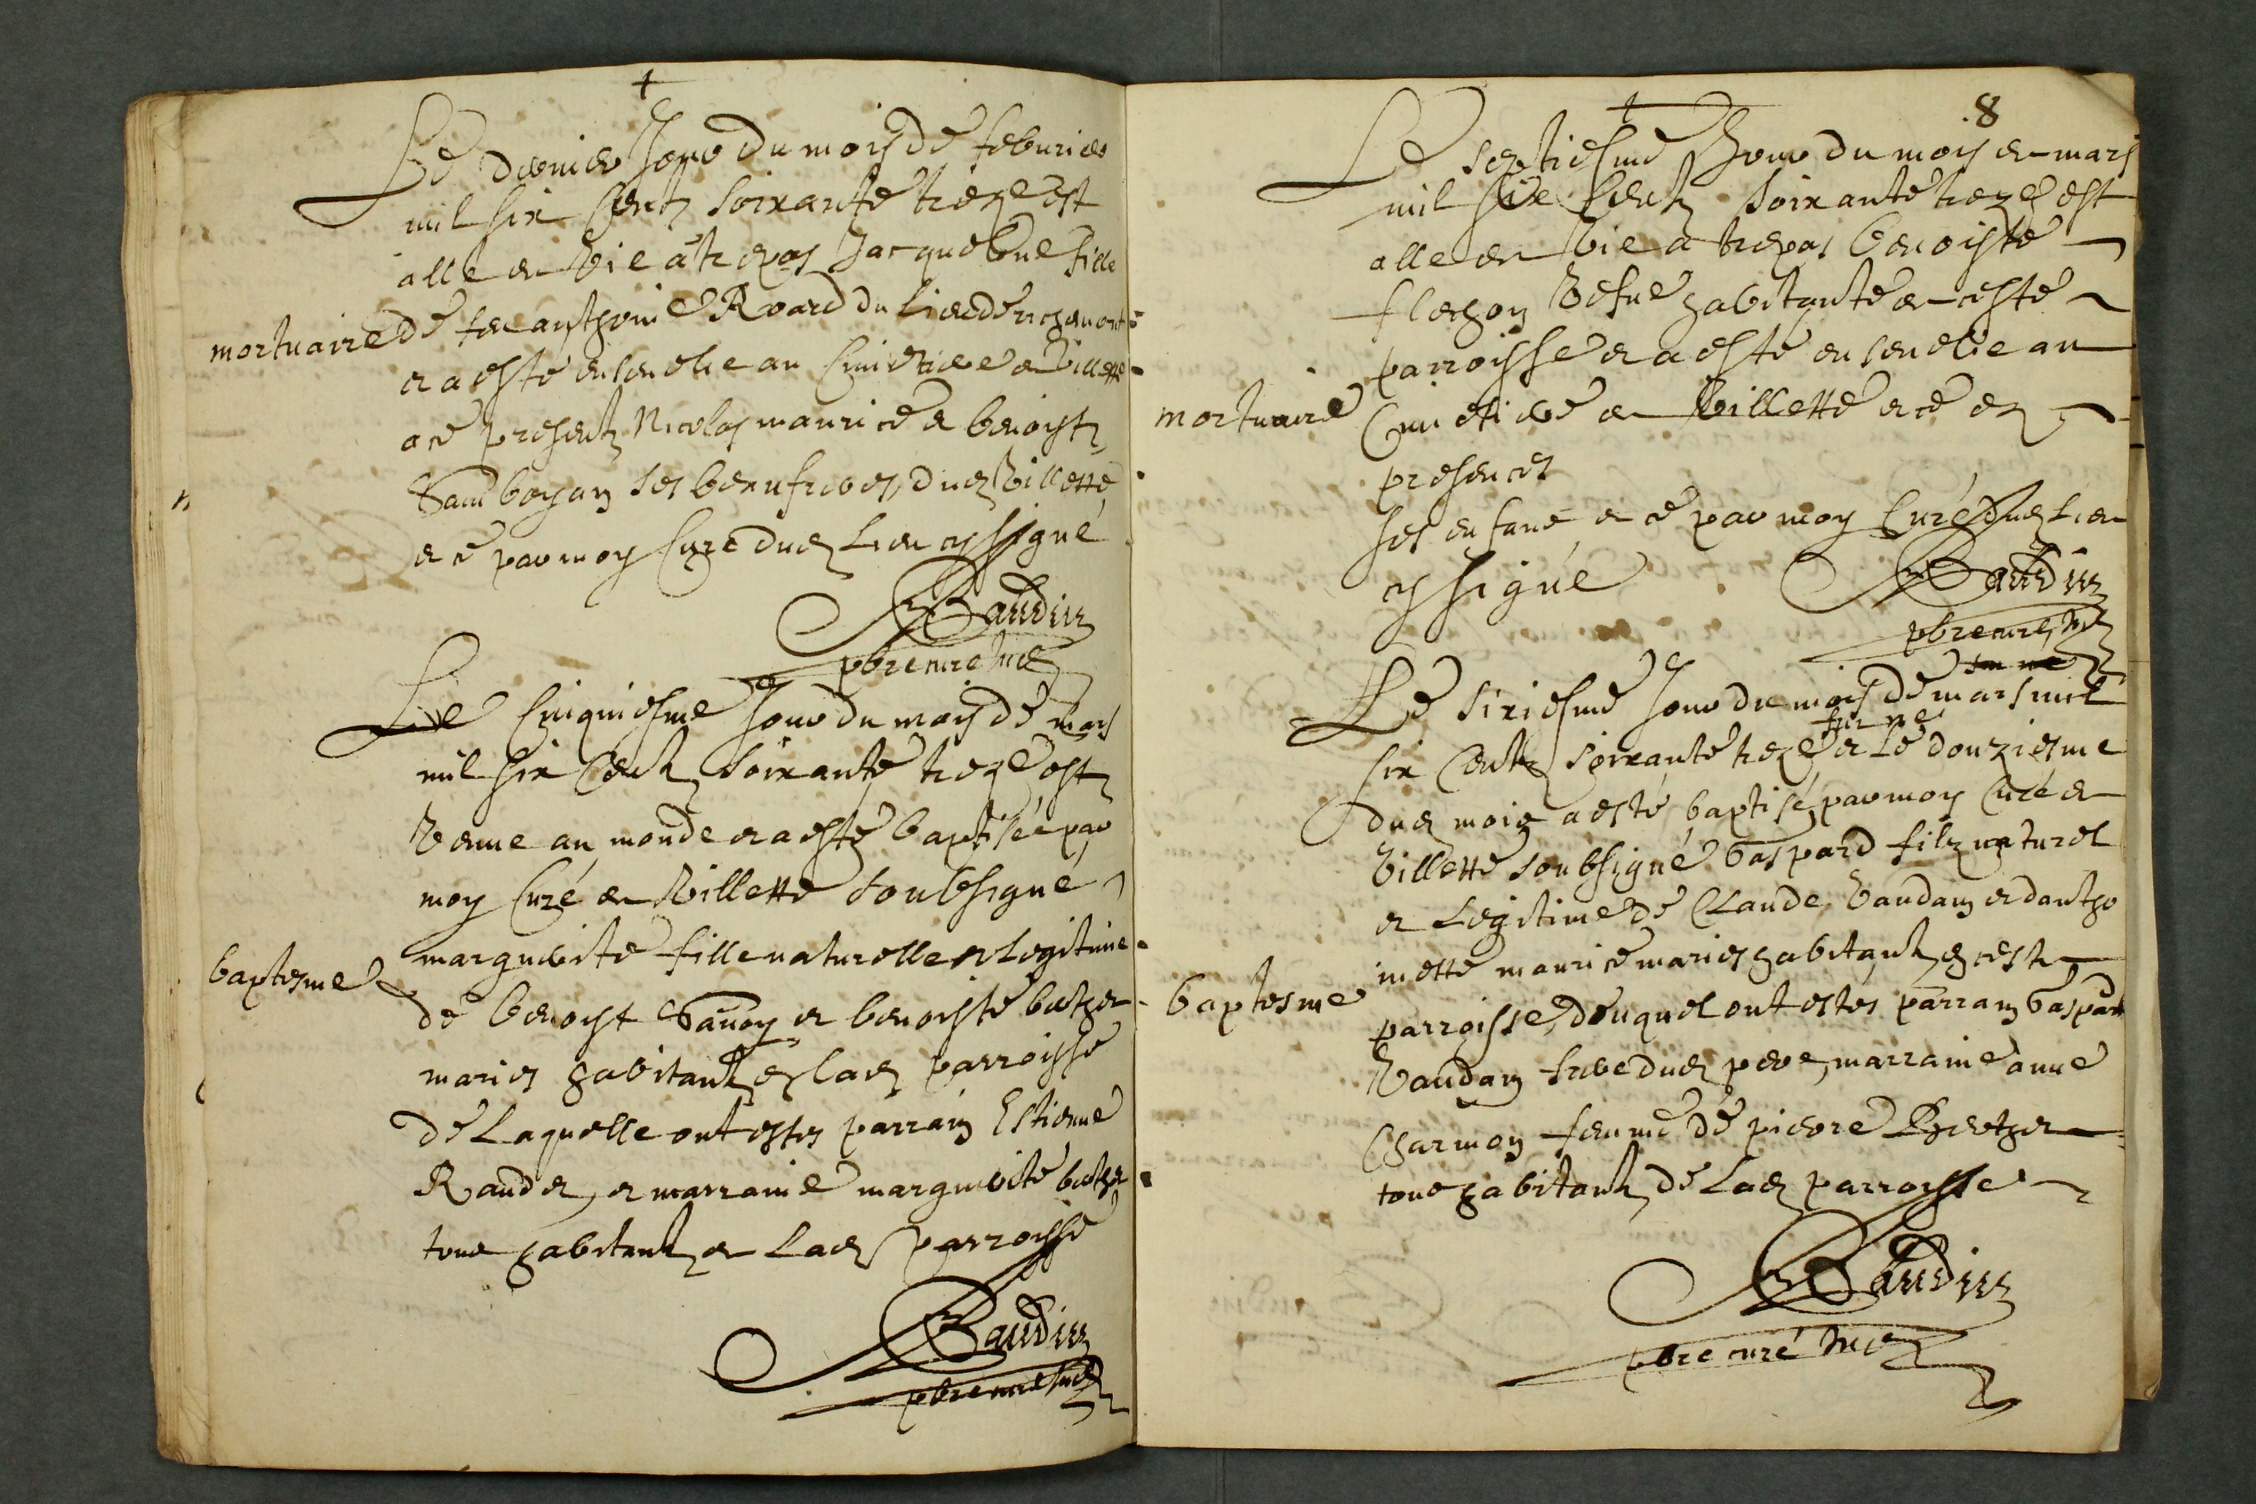 Le dernier Jour du mois de feburier
mil six Centz soixante treze est
alle de vie a trepas Jacqueline fille
mortuaire
de feu anthoine Roard du lieu de richemont
et a esté ensevelie au Cimetiere de Villette
a ce presentz Nicolas maurice & benoist
ses beaufreres dud Villette
et ce par moy Curé dud lieu cy signé
RBaudin
pbre curé susd
Le Cinquiesme Jour du mois de mars
mil six Centz soixante treze est
venue au monde et a esté baptisée par
moy Curé de Villette soubsigné
marguerite fille naturelle et legitime
baptesme
de benoist Savoy et benoiste berthet
maries habitantz en lad parroisse
de Laquelle ont estes parrain Estienne
Raudet, et marraine marguerite berthet
tous habitantz de Lad parroisse
RBaudin
pbre curé susd
8
Le septiesme Jour du mois de mars
mil six Centz soixante treze est
alle de vie a trepas benoiste
flechon vefue habitante de ceste
parroisse et a esté ensevelie au
mortuaire
Cimetiere de Villette et ce en
presences
ses enfans et ce par moy Curé dud Lieu
cy signé
RBaudin
pbre curé susd
Le sixiesme Jour du mois de mars mil
six Centz soixante treze et Le douziesme
dud mois a esté baptisé par moy Curé de
Villette soubsigné Gaspard filz naturel
et Legitime de Claude Vaudan et dantho
inette maurice maries habitantz en ceste
baptesme
parroisse, duquel ont estés parrain Gaspard
Vaudan frere dud pere, marraine anne
Charmon femme de pierre Berthet
tous habitantz de Lad parroisse
RBaudin
pbre curé susd